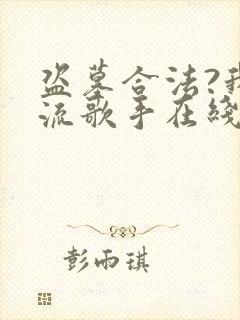 盗墓合法?我
流歌手在綫
彭雨琪